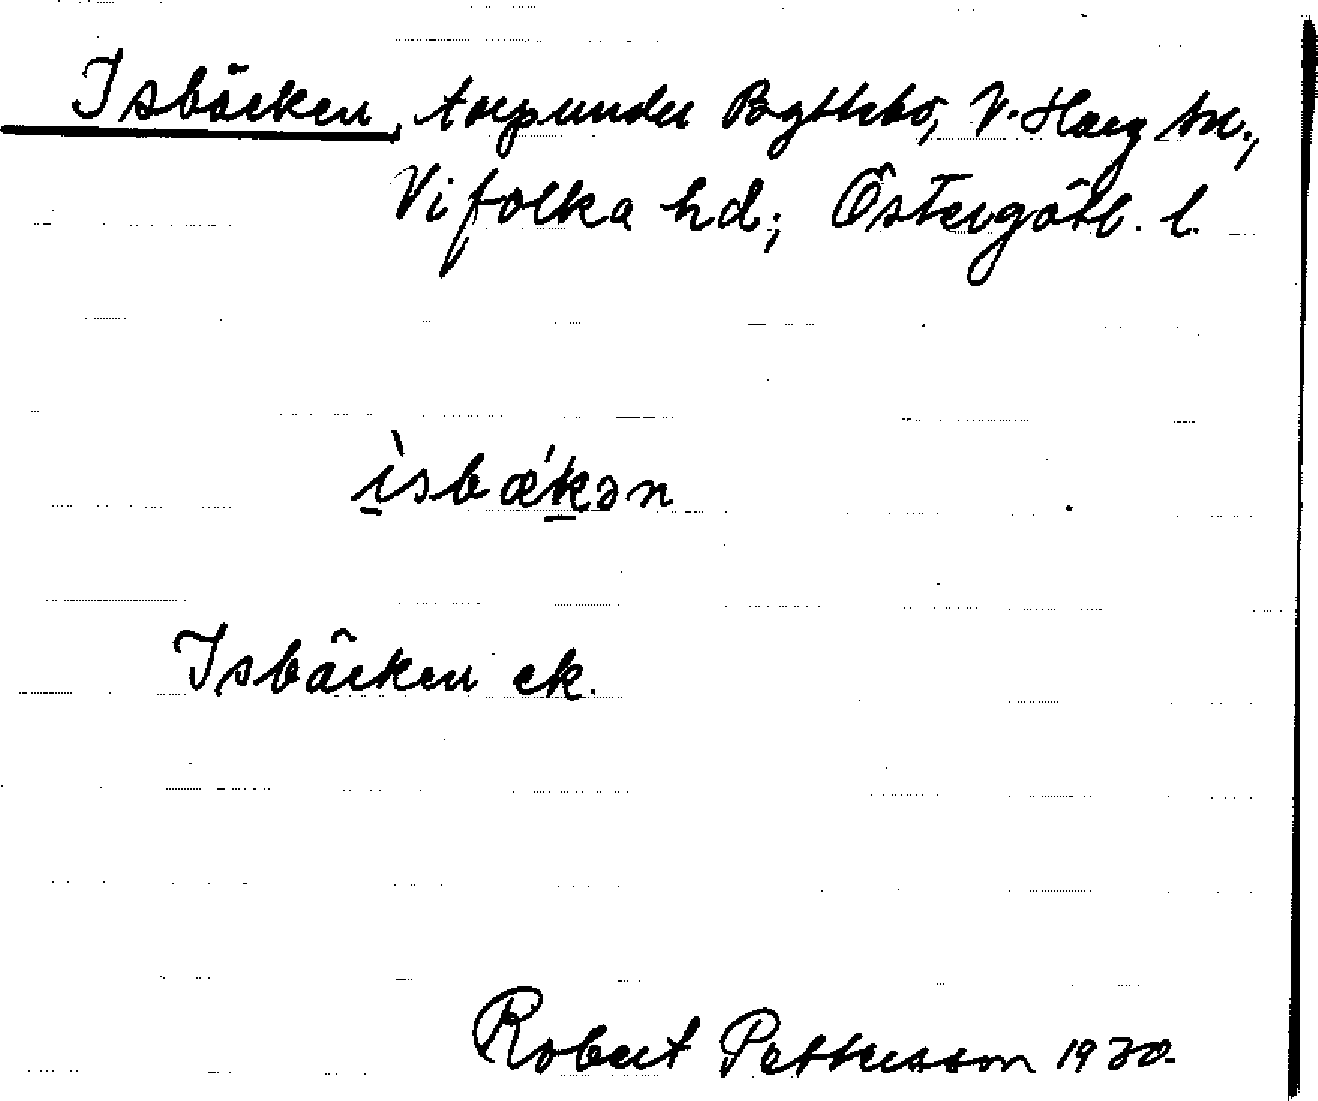 Isbäcken, torp under Bgttebo, V. Harg sn.,
Vifolka hd; Östergötl. l.
ìsbǽkən
Isbäcken ek.
Robert Pettersson 1930.